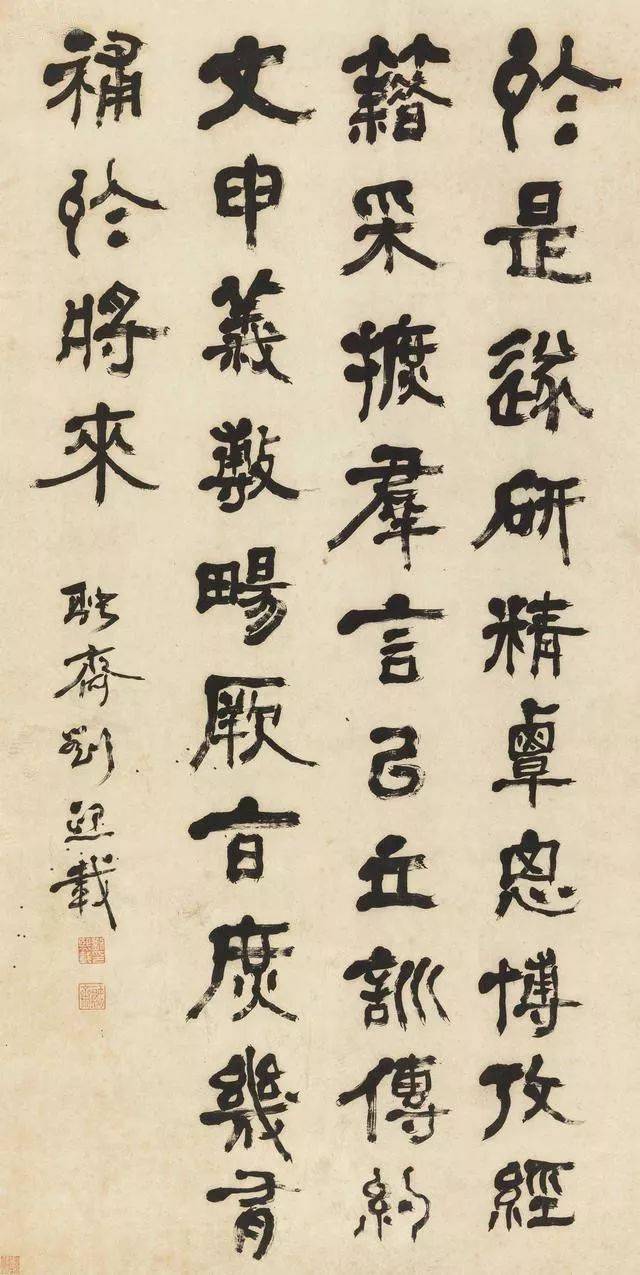 於是遂研精覃思博攷經
籍采摭羣言㠯立訓傳約
文申義敷畼厥旨庶幾有
補於將來
融齋劉熙載